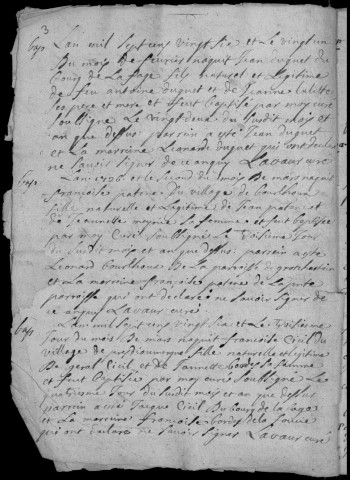 3
bap
L'an mil sept cens vingt six et Le vingt un
Du mois De feuvrier naquit Jean duguet du
bourg De La fage fils naturel et Legitime
de feu antoine duguet et de Jeanne
ses pere et mere et feut Baptisé par moy curé
soussigné Le vingt deux du susdit mois et
an que dessus parrain a esté Jean duguet
et La marraine Leonarde duguet qui ont declaré
ne sauoir signer de ce enquy Lavaur curé
bap
L'an 1726 et le second du mois De mars naquit
francoise patene du village de Courbhane
fille naturelle et Legitime de Jean patene et
de Jeannette sa femme et feut baptisée
par moy Curé soussigné Le troisieme Jour
du susdit mois et an que dessus parrain a esté
Leonard Courbhane De La parroisse de
et La marraine francoise patene de La susdite
parroisse qui ont declaré ne sauoir signer de
ce enquy Lavaur curé
bap
L'an mil sept cens vingt six et Le troisieme
Jour du mois De mars naquit francoise Civil du
village de fille naturelle et legitime
De geral Civil et de Jeanne bordes sa femme
et feut Baptisée par moy curé soussigné Le
quatrieme Jour du susdit mois et an que dessus
parrain a esté Jacque Civil Du bourg de La faga
et La marraine francoise bordes de La
qui ont declaré ne sauoir signer Lavaur curé